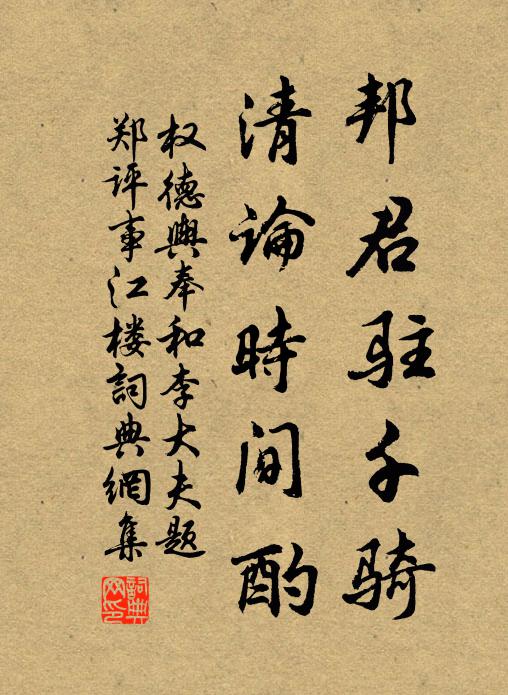 邦君驻千骑
清論時间酌
权德輿奉和李大夫题
郑评事江楼詞典網集
詞典网印